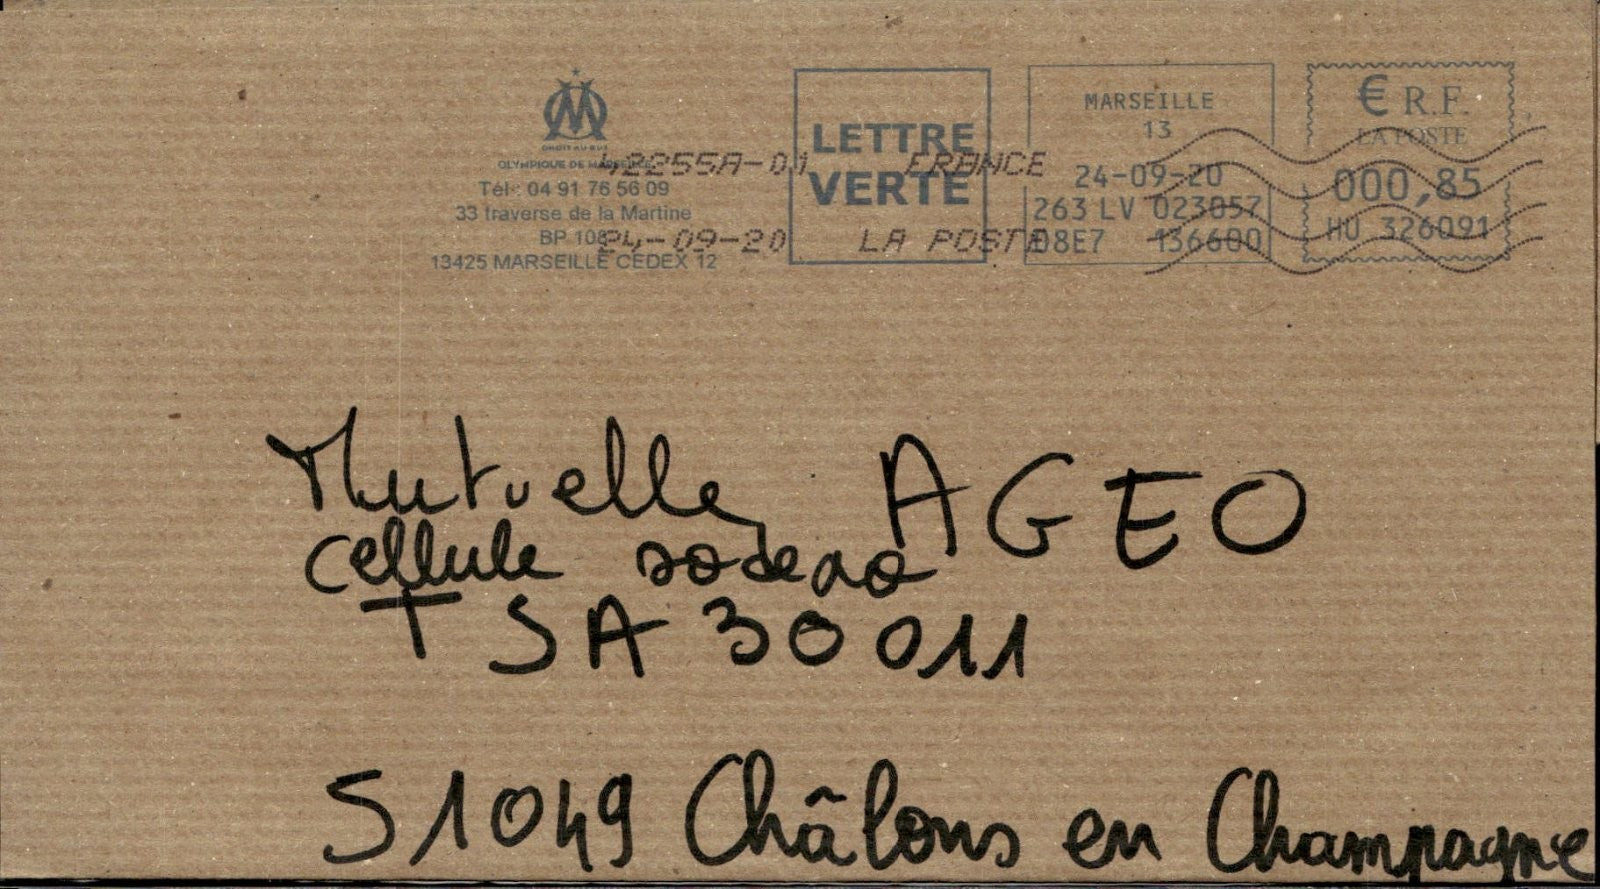 DROIT AU BUT
OLYMPIQUE DE MARSEILLE
Tél : 04 91 76 56 09
33 traverse de la Martine
BP 108
13425 MARSEILLE CEDEX 12
42255A-01 FRANCE
24-09-20 LA POSTE
LETTRE
VERTE
MARSEILLE
13
24-09-20
263 LV 023057
D8E7 136600
€ R.F.
LA POSTE
000,85
HU 326091
Mutuelle AGEO
cellule
TSA 30011
51049 Châlons en Champagne